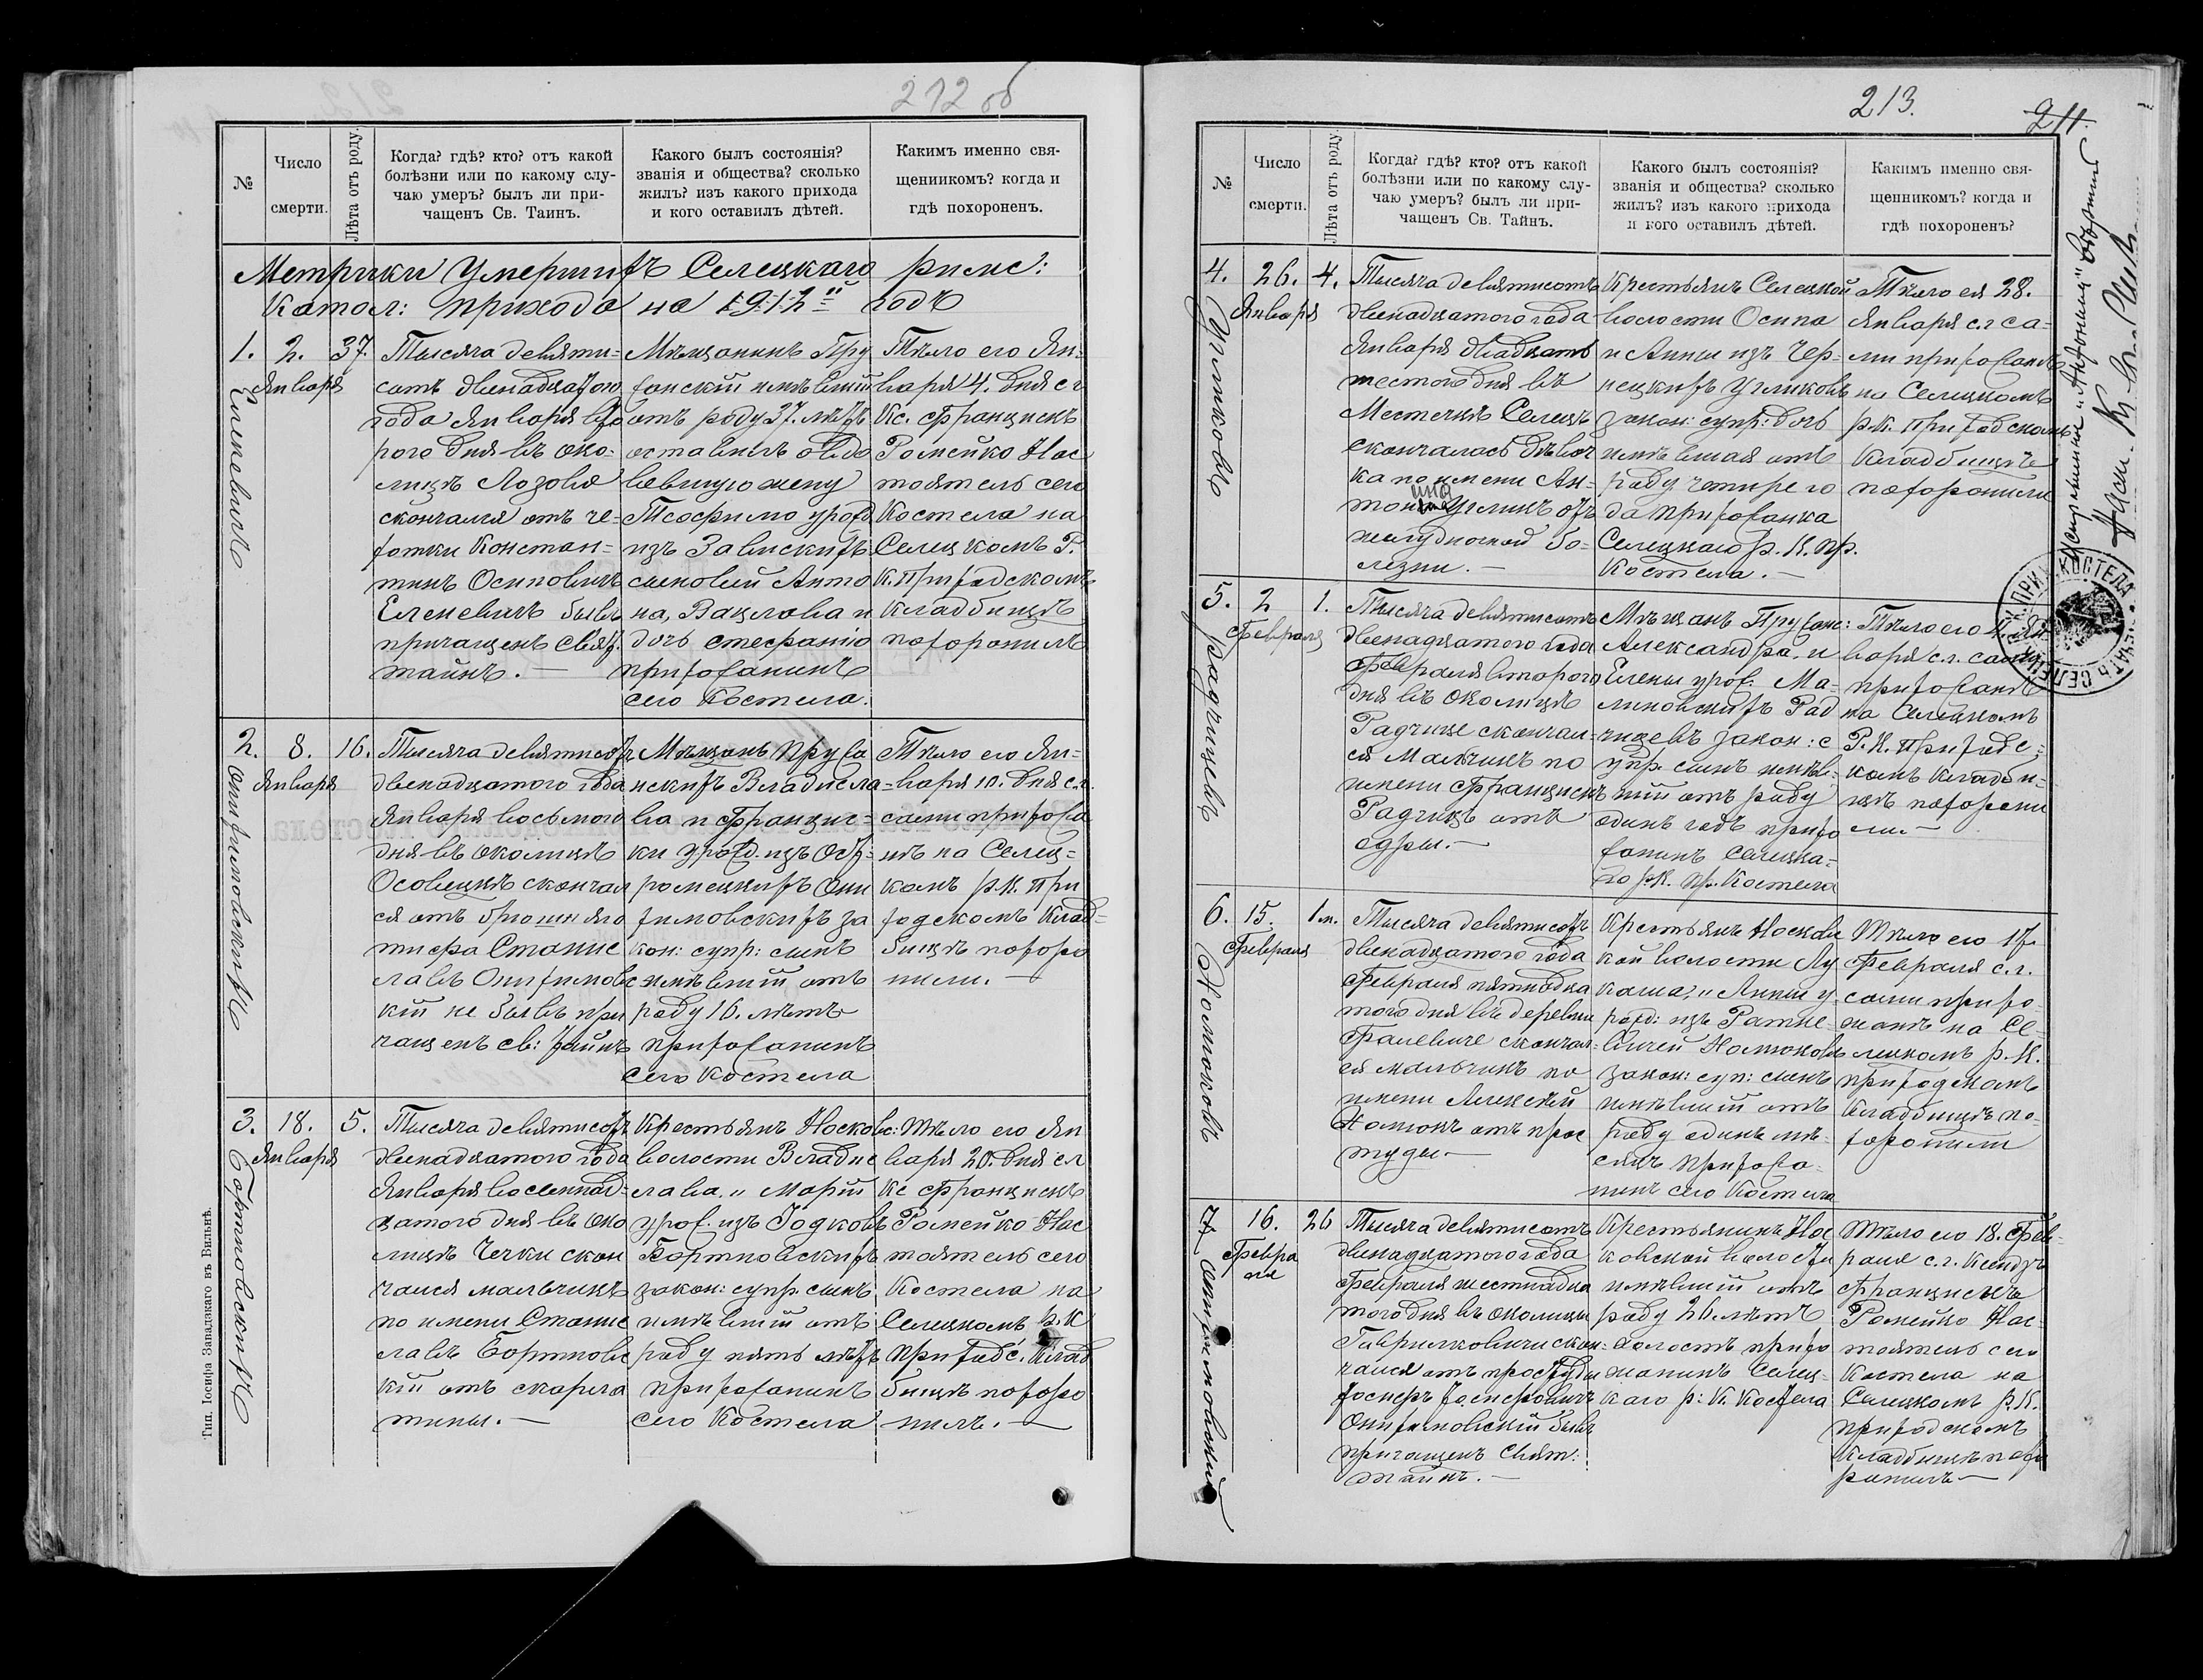 212 об
№
Число
смерти.
Лѣта отъ роду.
Когда? гдѣ? кто? отъ какой
болѣзни или по какому слу-
чаю умеръ? былъ ли при-
чащенъ Св. Таинъ.
Какого былъ состоянія?
званія и общества? сколько
жилъ? изъ какого прихода
и кого оставилъ дѣтей.
Какимъ именно свя-
щенникомъ? когда и
гдѣ похороненъ.
Метрики Умершихъ Селецкаго римс:
Катол: прихода на 1912й годъ
1.
2.
Января
37.
Еленевичъ
Тысяча девяти=
сотъ двенадцатого
года Января вто
рого дня въ око=
лицѣ Лозовѣ
скончался отъ че=
хотки Констан=
тинъ Осиповичъ
Еленевичъ бывъ
причащенъ Свят.
тайнъ. —
Мѣщанинъ Пру
жанскій имѣвшій
отъ роду 37. лѣтъ
оставилъ овдо
вѣвшую жену
Теофилю урожд
изъ Завискихъ
сыновей Анто
на, Вацлова и
дочь Стефанію
прихожанинъ
сего Костела.
Тѣло его Ян=
варя 4. дня с г
Кс. Францискъ
Ромейко Нас
тоятель сего
Костела на
Селецкомъ Р.
К. Приходскомъ
Кладбищѣ
похоронилъ
2.
8.
Января
16.
Онихимовскій
Тысяча девятисотъ
двенадцатого года
Января восьмого
дня въ околицѣ
Осовецкѣ скончал
ся отъ брюшняго
тифа Станис
лавъ Онихимовс
кій не бывъ при
чащенъ св: тайнъ
Мѣщанъ Пружа
нскихъ Владисла=
ва и Францис=
ки урожд. изъ Ост=
ромецкихъ Они
химовскихъ за
кон: супр: сынъ
имѣвшій отъ
роду 16. лѣтъ
прихожанинъ
сего Костела
Тѣло его Ян=
варя 10. дня с.г.
сами прихожа
нѣ на Селец=
комъ р.К. При
ходскомъ Клад=
бищѣ похоро
нили. —
3.
18.
Января
5.
Бортновскій
Тысяча девятисотъ
двенадцатого года
Января восемнад=
цатого дня въ око
лицѣ Чечки скон
чался мальчикъ
по имени Станис
лавъ Бортновс
кій отъ скарла
тины. —
Крестьянъ Носковс:
волости Владис
лава „ Маріи
урож. изъ Годковъ
Бортновскихъ
закон: супр. сынъ
имѣвшій отъ
роду пять лѣтъ
прихожанинъ
сего Костела
Тѣло его Ян
варя 20. дня с г
Кс Францискъ
Ромейко Нас
тоятель сего
Костела на
Селецкомъ р.К
Приходс. Клад
бищѣ похоро
нилъ. —
Тип. Іосифа Завадзкаго въ Вильнѣ.
213.
211.
№
Число
смерти.
Лѣта отъ роду.
Когда? гдѣ? кто? отъ какой
болѣзни или по какому слу-
чаю умеръ? былъ ли при-
чащенъ Св. Тайнъ.
Какого былъ состоянія?
званія и общества? сколько
жилъ? изъ какого прихода
и кого оставилъ дѣтей.
Какимъ именно свя-
щенникомъ? когда и
гдѣ похороненъ?
4.
26.
Января
4.
Тысяча девятисотъ
двенадцатого года
Января двадцать
шестого дня въ
Местечкѣ Селецъ
скончалась дѣвоч
ка по имени Ан=
тонина Угликъ отъ
желудочной бо=
лезни. —
Крестьянъ Селецкой
волости Осипа
и Анны изъ Чер=
нецкихъ Угликовъ
закон: супр: дочь
имѣвшая отъ
роду четыре го
да прихожанка
Селецкаго р. К. пр.
Костела. —
Тѣло ея 28.
Января с.г са=
ми прихожанѣ
на Селецкомъ
р.К. Приходскомъ
Кладбищѣ
похоронили
5.
2
Февраля
1.
Тысяча девятисотъ
двенадцатого года
Февраля второго
дня въ околицѣ
Радчице скончал=
ся Мальчикъ по
имени Францискъ
Радчицъ отъ
одры. —
Мѣщанъ Пружанс:
Александра. и
Елены урож. Ма=
линовскихъ Рад
чицевъ закон: с
упр. сынъ имѣв=
шій отъ роду
одинъ годъ прихо
жанинъ Селецка=
го р.К. пр. Костела
Тѣло его 4. Ян
варя с.г. сами
прихожанѣ
на Селецкомъ
Р. К. Приходс=
комъ кладби=
щѣ похорони
ли. —
6.
15.
Февраля
1 м.
Тысяча девятисотъ
двенадцатого года
Февраля пятнадца
того дня въ деревни
скончал=
ся мальчикъ по
имени Алексѣй
Homюкъ отъ прос
туды. —
Крестьянъ Носковс
кой волости Лу
каша, „ Анны у
рожд: изъ Ратке=
вичей
закон: суп: сынъ
имѣвшій отъ
роду одинъ мѣ=
сяцъ прихожа=
нинъ сего Костела
Тѣло его 17.
Февраля с.г.
сами прихо=
жанѣ на Се=
лецкомъ р.К.
приходскомъ
Кладбищѣ по=
хоронили
7.
16.
Февра
ля
26
Онихимовскій
Тысяча девятисотъ
двенадцатого года
Февраля шестнадца
того дня въ околицы
Гаврилковичи скон=
чался отъ простуды
Онихимовскій бывъ
причащенъ Свят:
тайнъ. —
Крестьянинъ Нос
ковской волости
имѣвшій отъ
роду 26 лѣтъ
холостъ прихо
жанинъ Селец=
каго р: К. Костела
Тѣло его 18. Фев=
раля с.г. Ксендзъ
Францискъ
Ромейко Нас=
тоятель сего
Костела на
Селецкомъ р.К.
приходскомъ
Кладбищѣ похо
ронилъ —
Исправленіе „Антонина" вѣрно